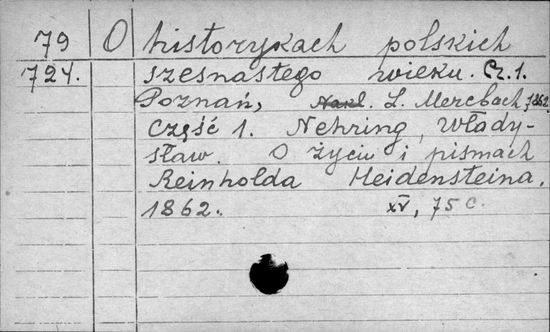 79 O historykach polskich
724. szesnastego wieku. Cz. 1.
Poznań, Nakł. L. Merzbach, 1862
Część 1. Nehring, Włady-
sław. O życiu i pismach
Reinholda Heidensteina.
1862. XV, 75 c.